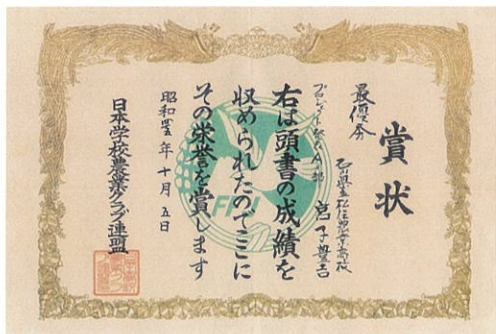 賞状
最優秀
石川県立松任農業高校
右は頭書の成績を
収められたのでここに
その栄誉を賞します
昭和 年 十月 五日
日本学校農業クラブ連盟
FFJ